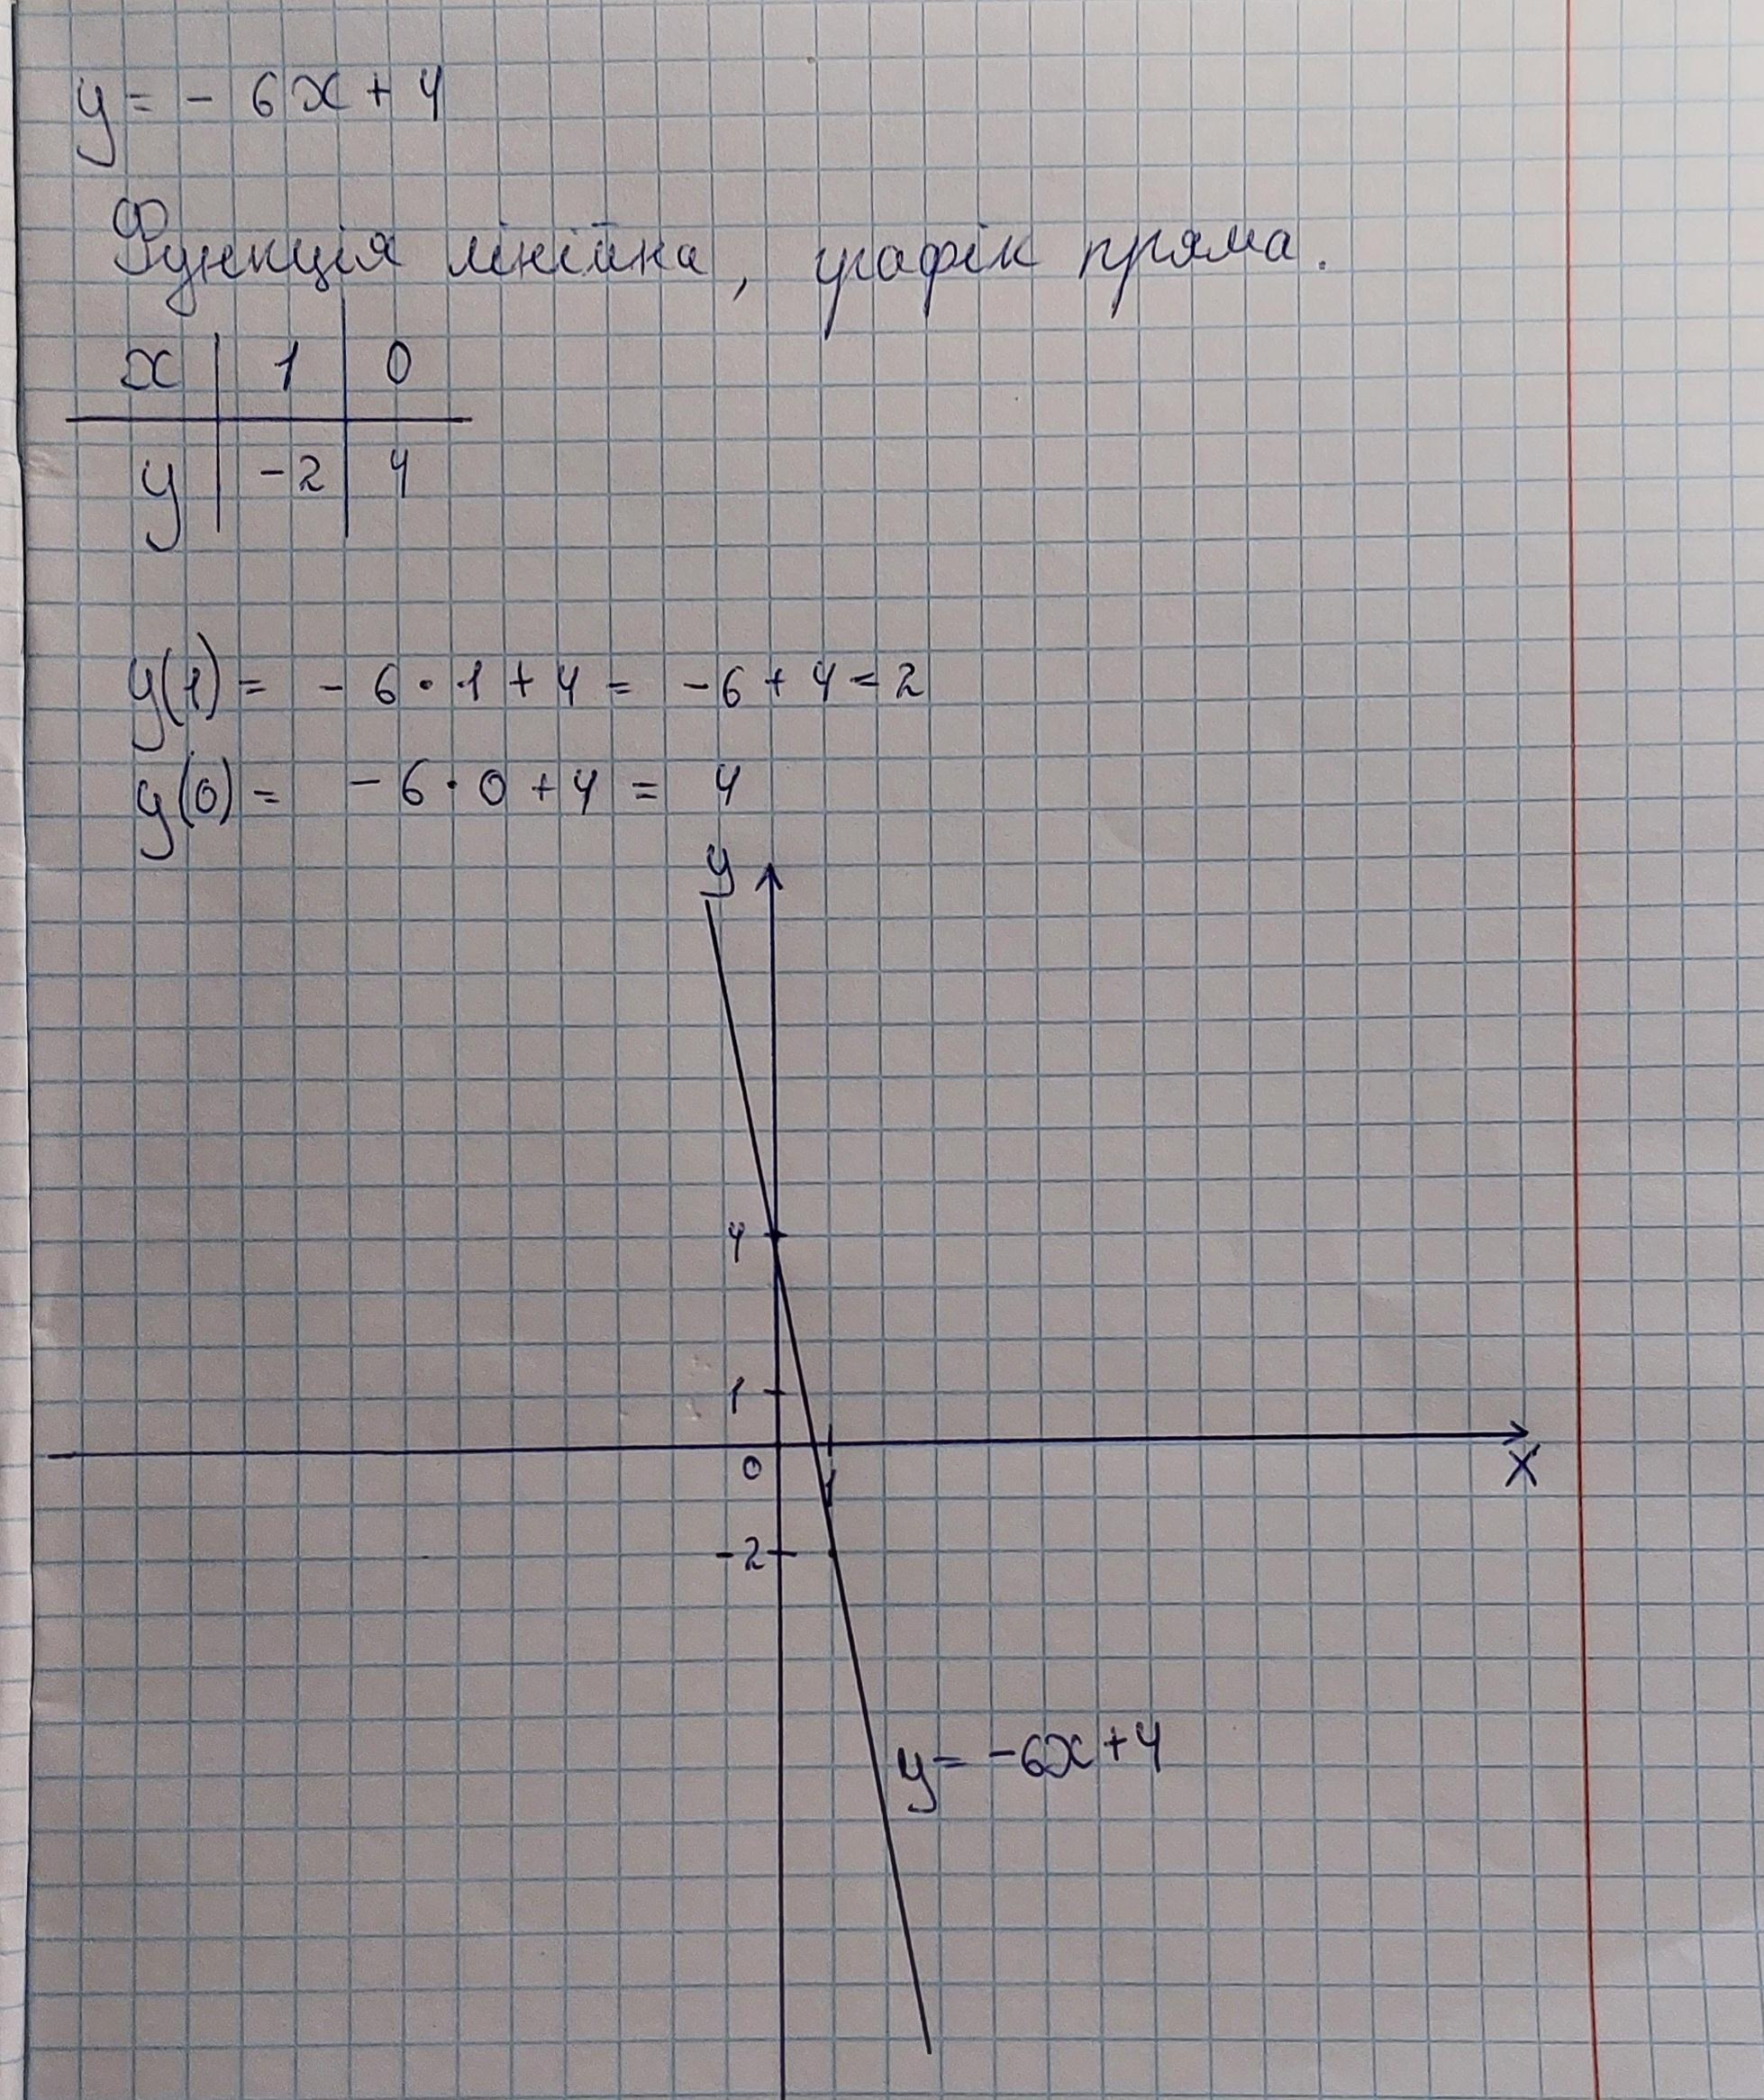 y = - 6x + 4
Функція лінійна, графік пряма.
x | 1 | 0
y | -2 | 4
y(1) = - 6 · 1 + 4 = -6 + 4 = 2
y(0) = - 6 · 0 + 4 = 4
y
4
1
0
1
x
-2
y = -6x + 4